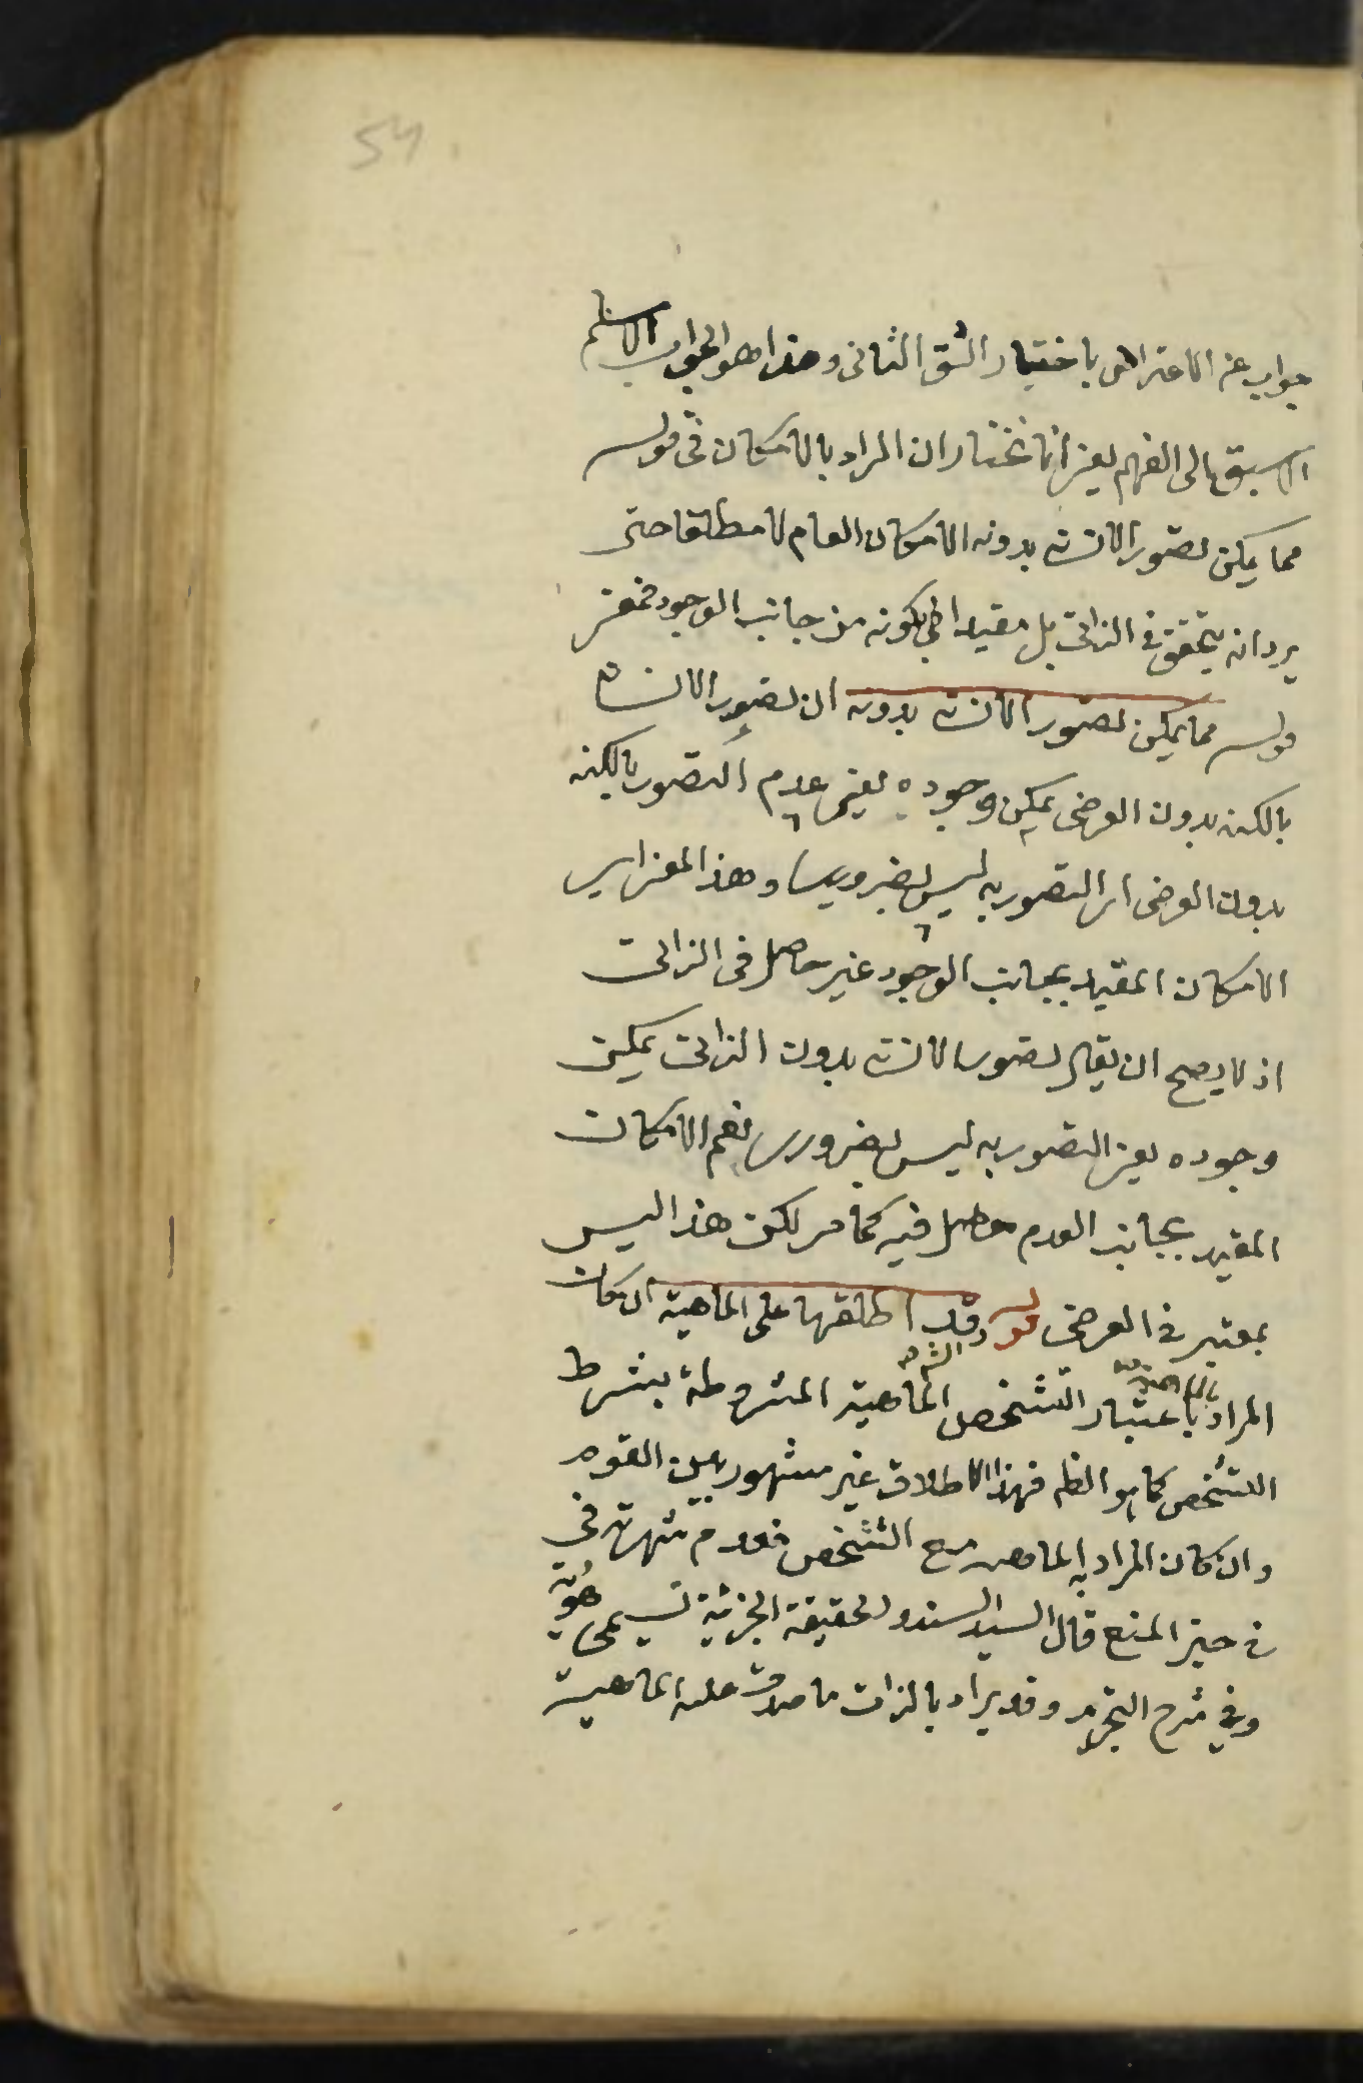 54
جواب عن الاعتراض باختيار الشق الثانى وهذا هو الجواب الاسلم
الاسبق الى الفهم يعنى انا نختار ان المراد بالامكان فى قوله
مما يمكن تصور الانسان بدونه الامكان العام لا مطلقا حتى
يرد انه يتحقق فى الذاتى بل مقيدا بكونه من جانب الوجود فمعنى
قوله مما يمكن تصور الانسان بدونه ان تصور الانسان
بالكنه بدون العرضى يمكن وجوده يعنى عدم التصور بالكنه
بدون العرضى اى التصور به ليس بضرورى وهذا المعنى اى
الامكان المقيد بجانب الوجود غير حاصل فى الذاتى
اذ لا يصح ان يقال تصور الانسان بدون الذاتى يمكن
وجوده يعنى التصور به ليس بضرورى نعم الامكان
المقيد بجانب العدم حاصل فيه كما مر لكن هذا ليس
بمعتبر فى العرضى قوله وقد اطلقها على الماهية ان كان
المراد بالماهية باعتبار التشخص الماهية المشروطة بشرط
التشخص كما هو الظم فهذا الاطلاق غير مشهور بين القوم
وان كان المراد به الماهية مع التشخص فعدم شهرته فى
فى حيز المنع قال السيد السند والحقيقة الجزئية تسمى هوية
وفى شرح التجريد وقد يراد بالذات ما صدقت عليه الماهية